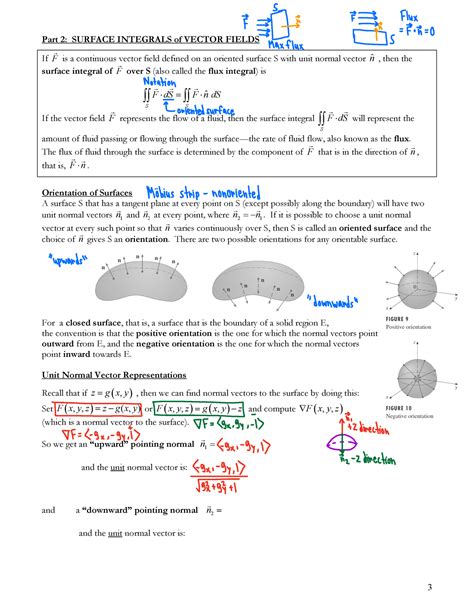 S
F⃗
Max flux
F⃗
S
Flux
= F⃗•n⃗ = 0
Part 2: SURFACE INTEGRALS of VECTOR FIELDS
If F⃗ is a continuous vector field defined on an oriented surface S with unit normal vector n⃗ , then the
surface integral of F⃗ over S (also called the flux integral) is
Notation
∬_S F⃗·dS⃗ = ∬ F⃗·n̂ dS
oriented surface
If the vector field F⃗ represents the flow of a fluid, then the surface integral ∬_S F⃗·dS⃗ will represent the
amount of fluid passing or flowing through the surface—the rate of fluid flow, also known as the flux.
The flux of fluid through the surface is determined by the component of F⃗ that is in the direction of n⃗ ,
that is, F⃗·n⃗ .
Orientation of Surfaces Möbius strip - nonoriented
A surface S that has a tangent plane at every point on S (except possibly along the boundary) will have two
unit normal vectors n⃗₁ and n⃗₂ at every point, where n⃗₂ = −n⃗₁. If it is possible to choose a unit normal
vector at every such point so that n⃗ varies continuously over S, then S is called an oriented surface and the
choice of n⃗ gives S an orientation. There are two possible orientations for any orientable surface.
"upwards"
n n n n n
n n n n n
"downwards"
FIGURE 9
Positive orientation
For a closed surface, that is, a surface that is the boundary of a solid region E,
the convention is that the positive orientation is the one for which the normal vectors point
outward from E, and the negative orientation is the one for which the normal vectors
point inward towards E.
FIGURE 10
Negative orientation
Unit Normal Vector Representations
Recall that if z = g(x, y) , then we can find normal vectors to the surface by doing this:
Set F(x, y, z) = z − g(x, y) or F(x, y, z) = g(x, y) − z and compute ∇F(x, y, z)
(which is a normal vector to the surface). ∇F = <gx, gy, -1>
∇F = <-gx, -gy, 1>
So we get an "upward" pointing normal n⃗₁ = <-gx, -gy, 1>
n⃗₁ +z direction
n⃗₂ -z direction
and the unit normal vector is: <-gx, -gy, 1>
√(gx² + gy² + 1)
and a "downward" pointing normal n⃗₂ =
and the unit normal vector is:
3